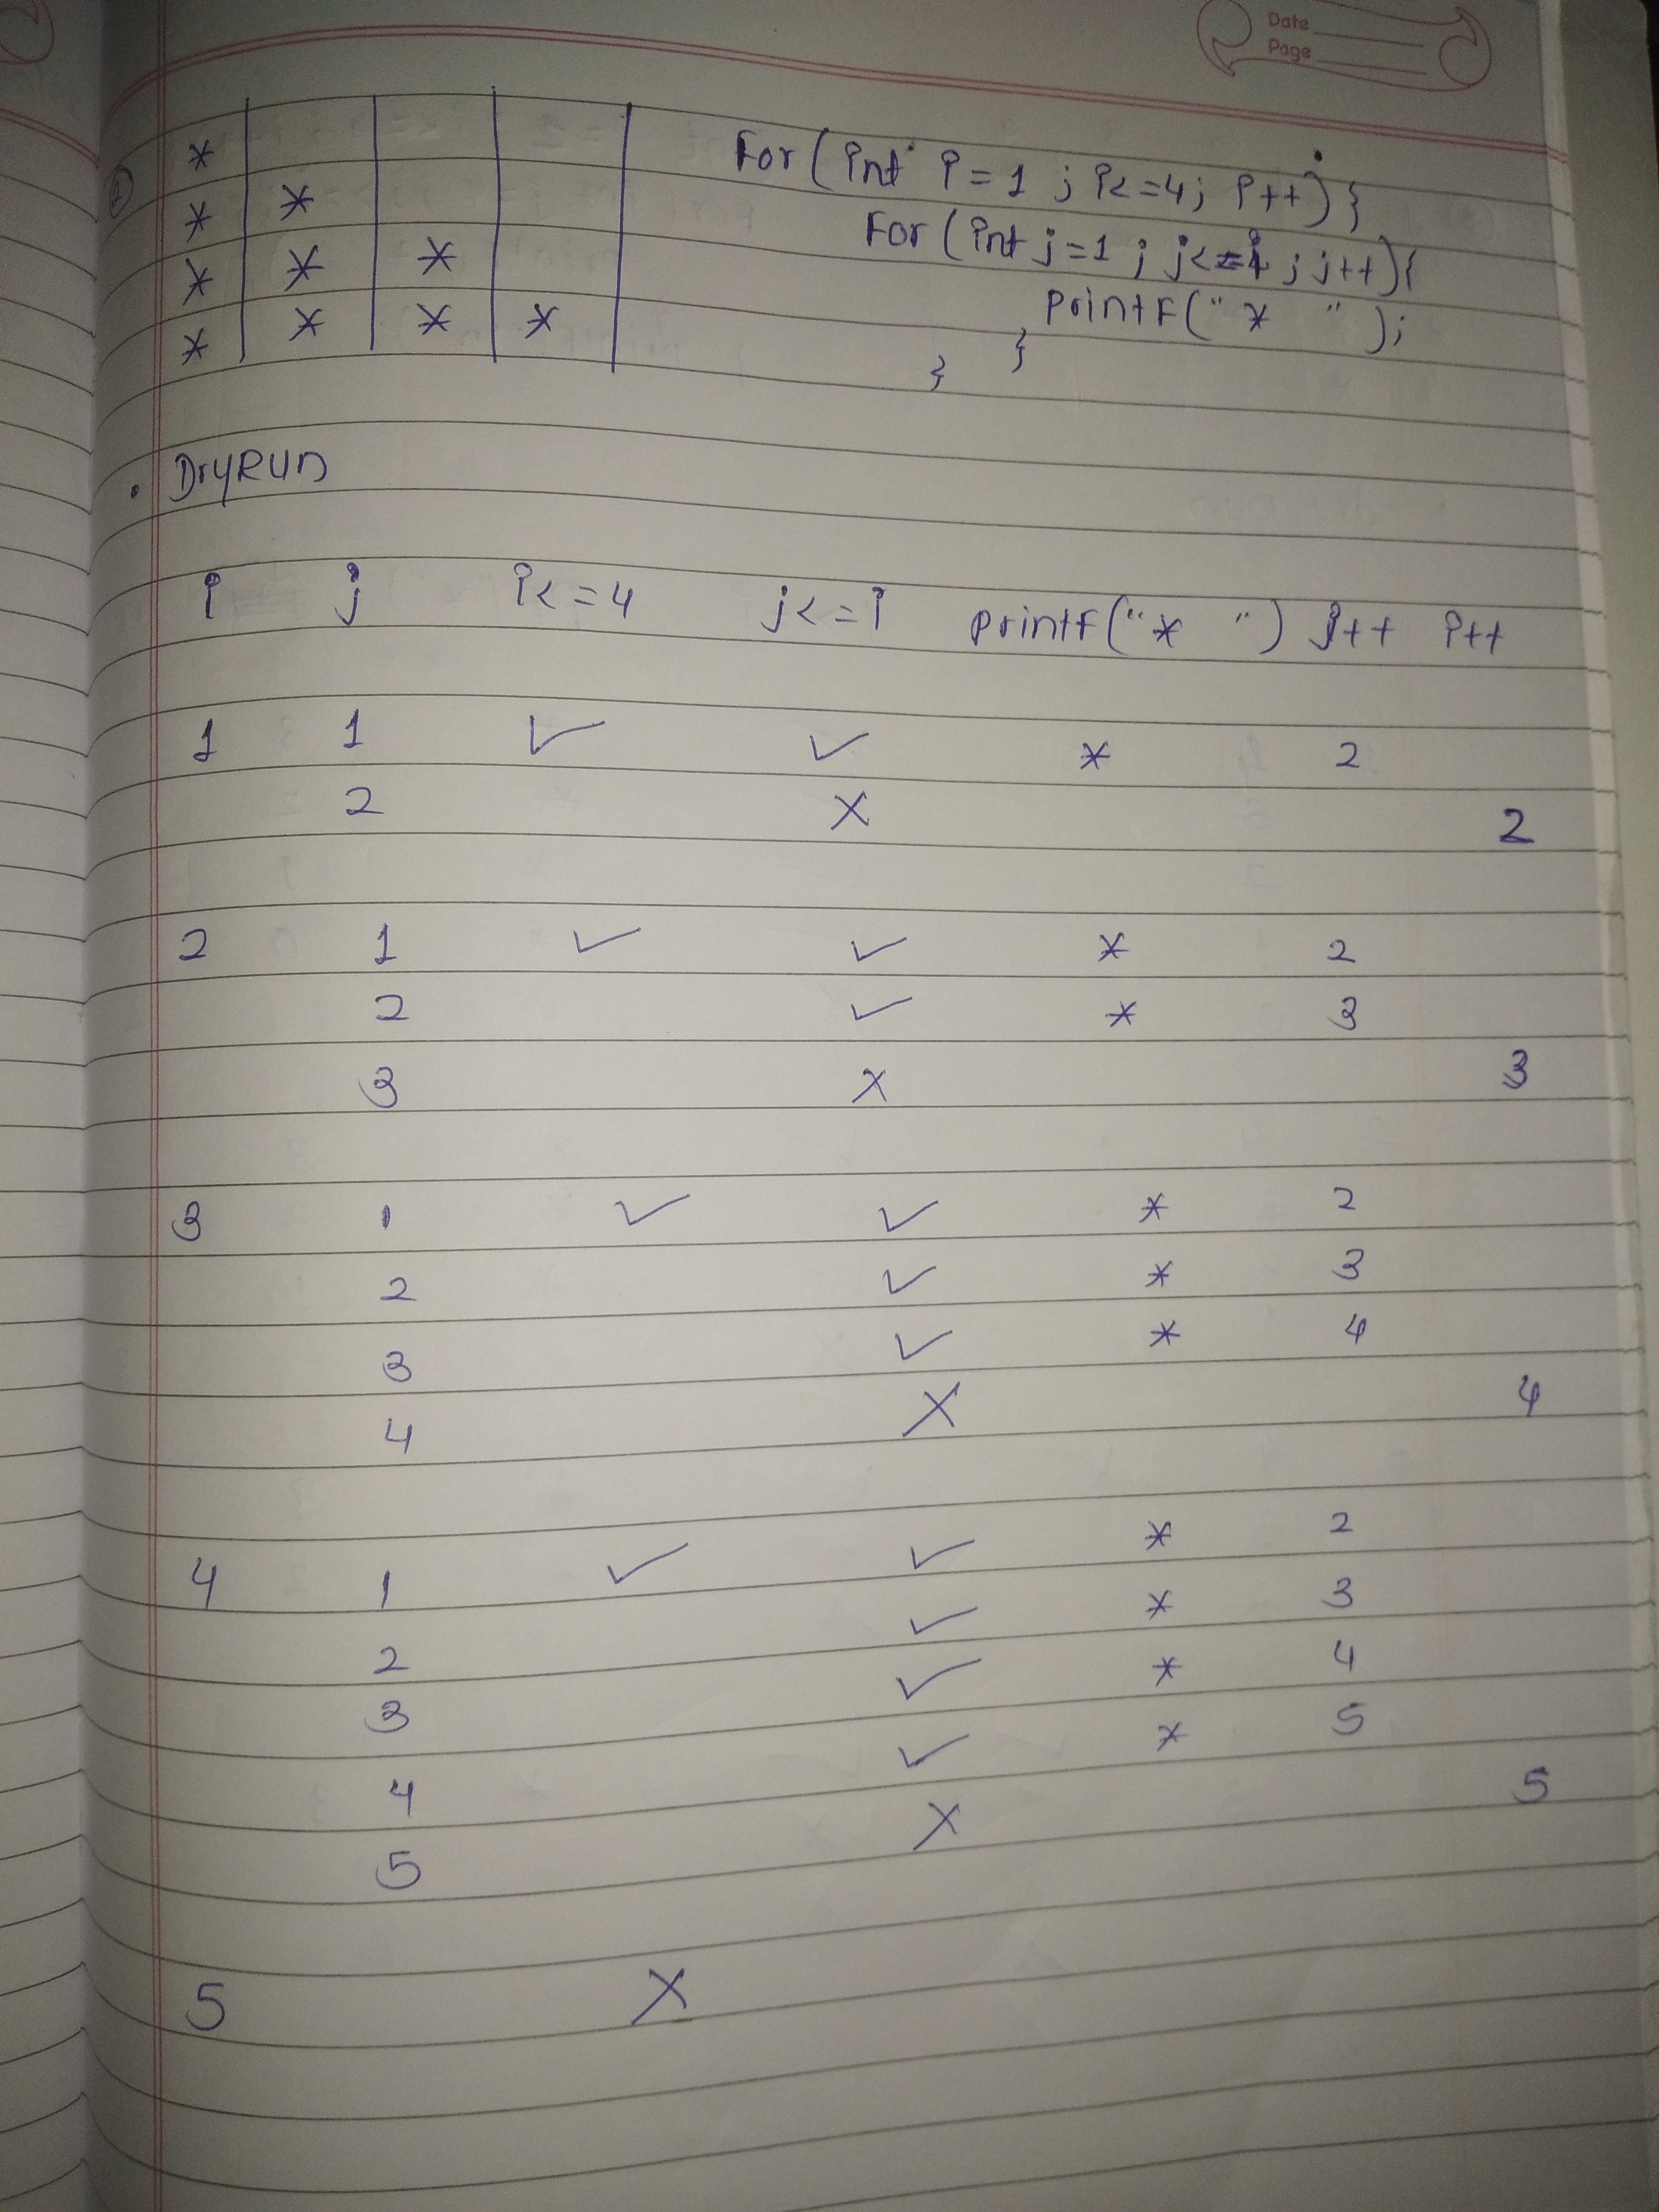 Date
Page
*
* *
* * *
* * * *
For (int i=1 ; i<=4; i++) }
For (int j=1 ; j<=i ; j++){
printf("*  ");
}
}
• DryRUN
i j i<=4 j<=i printf("*  ") j++ i++
1 1 ✓ ✓ * 2
2 X 2
2 1 ✓ ✓ * 2
2 ✓ * 3
3 X 3
3 1 ✓ ✓ * 2
2 ✓ * 3
3 ✓ * 4
4 X 4
4 1 ✓ ✓ * 2
2 ✓ * 3
3 ✓ * 4
4 ✓ * 5
5 X 5
5 X